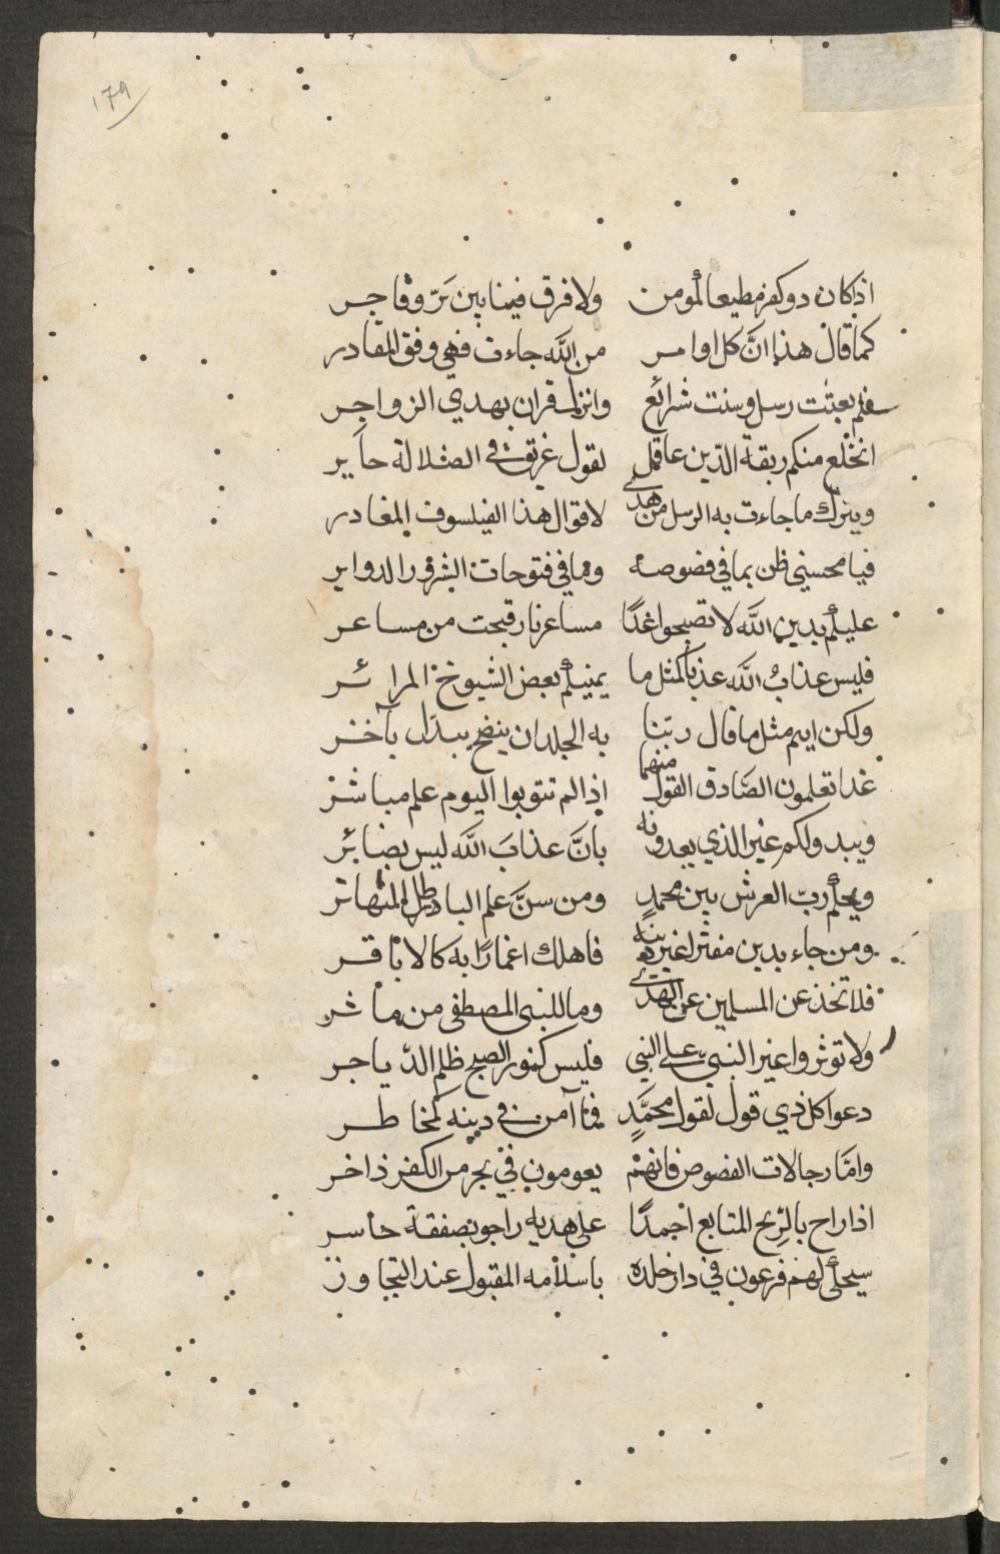 ١٧٩
اذا كان ذو كفر مطيعا لمومن ولا فرق فينا بين برّ وفاجر
كما قال هذا انَّ كل اوامر من اللّه جاءت فهي وفق المقادر
فلم بعثت رسل وسنت شرائع وانزل قران بهدي الزواجر
اتخلع منكم ربقة الدّين عاقل لقول غريق في الضلالة حاير
ويترك ما جاءت به الرسل من هدى لاقوال هذا الفيلسوف المغادر
فيا محسني ظن بما في فصوصه وما في فتوحات الشرور الدواير
عليكم بدين اللّه لا تصبحوا غدًا مساعر نار قبحت من مساعر
فليس عذابُ اللّه عذبا كمثل ما يمنيكم بعض الشيوخ المرائر
ولكن اليم مثل ما قال ربنا به الجلد ان ينضج يبدّل بآخر
غدا تعلمون الصّادق القول منهما اذا لم تتوبوا اليوم علم مباشر
ويبدو لكم غير الذي يعدونه بانَّ عذابَ اللّه ليس بضائر
ويحكم ربّ العرش بين محمدٍ ومن سنَّ علم الباطل المتهاتر
ومن جاء بدين مفترا غير دينه فاهلك اغمارًا به كالاباقر
فلا تخدعن المسلمين عن الهدى وما للنبي المصطفى من مآثر
ولا توثروا غير النبيّ على النبي فليس كنور الصبح ظلم الدّياجر
دعوا كل ذي قول لقول محمَّدٍ فما آمن في دينه كمخاطر
وامَّا رجالات الفصوص فانهم يعومون في بحر من الكفر زاخر
اذا راح بالربح المتابع احمدًا على هديه راحوا بصفقة خاسر
سيحكى لهم فرعون في دار خلده باسلامه المقبول عند التجاوز